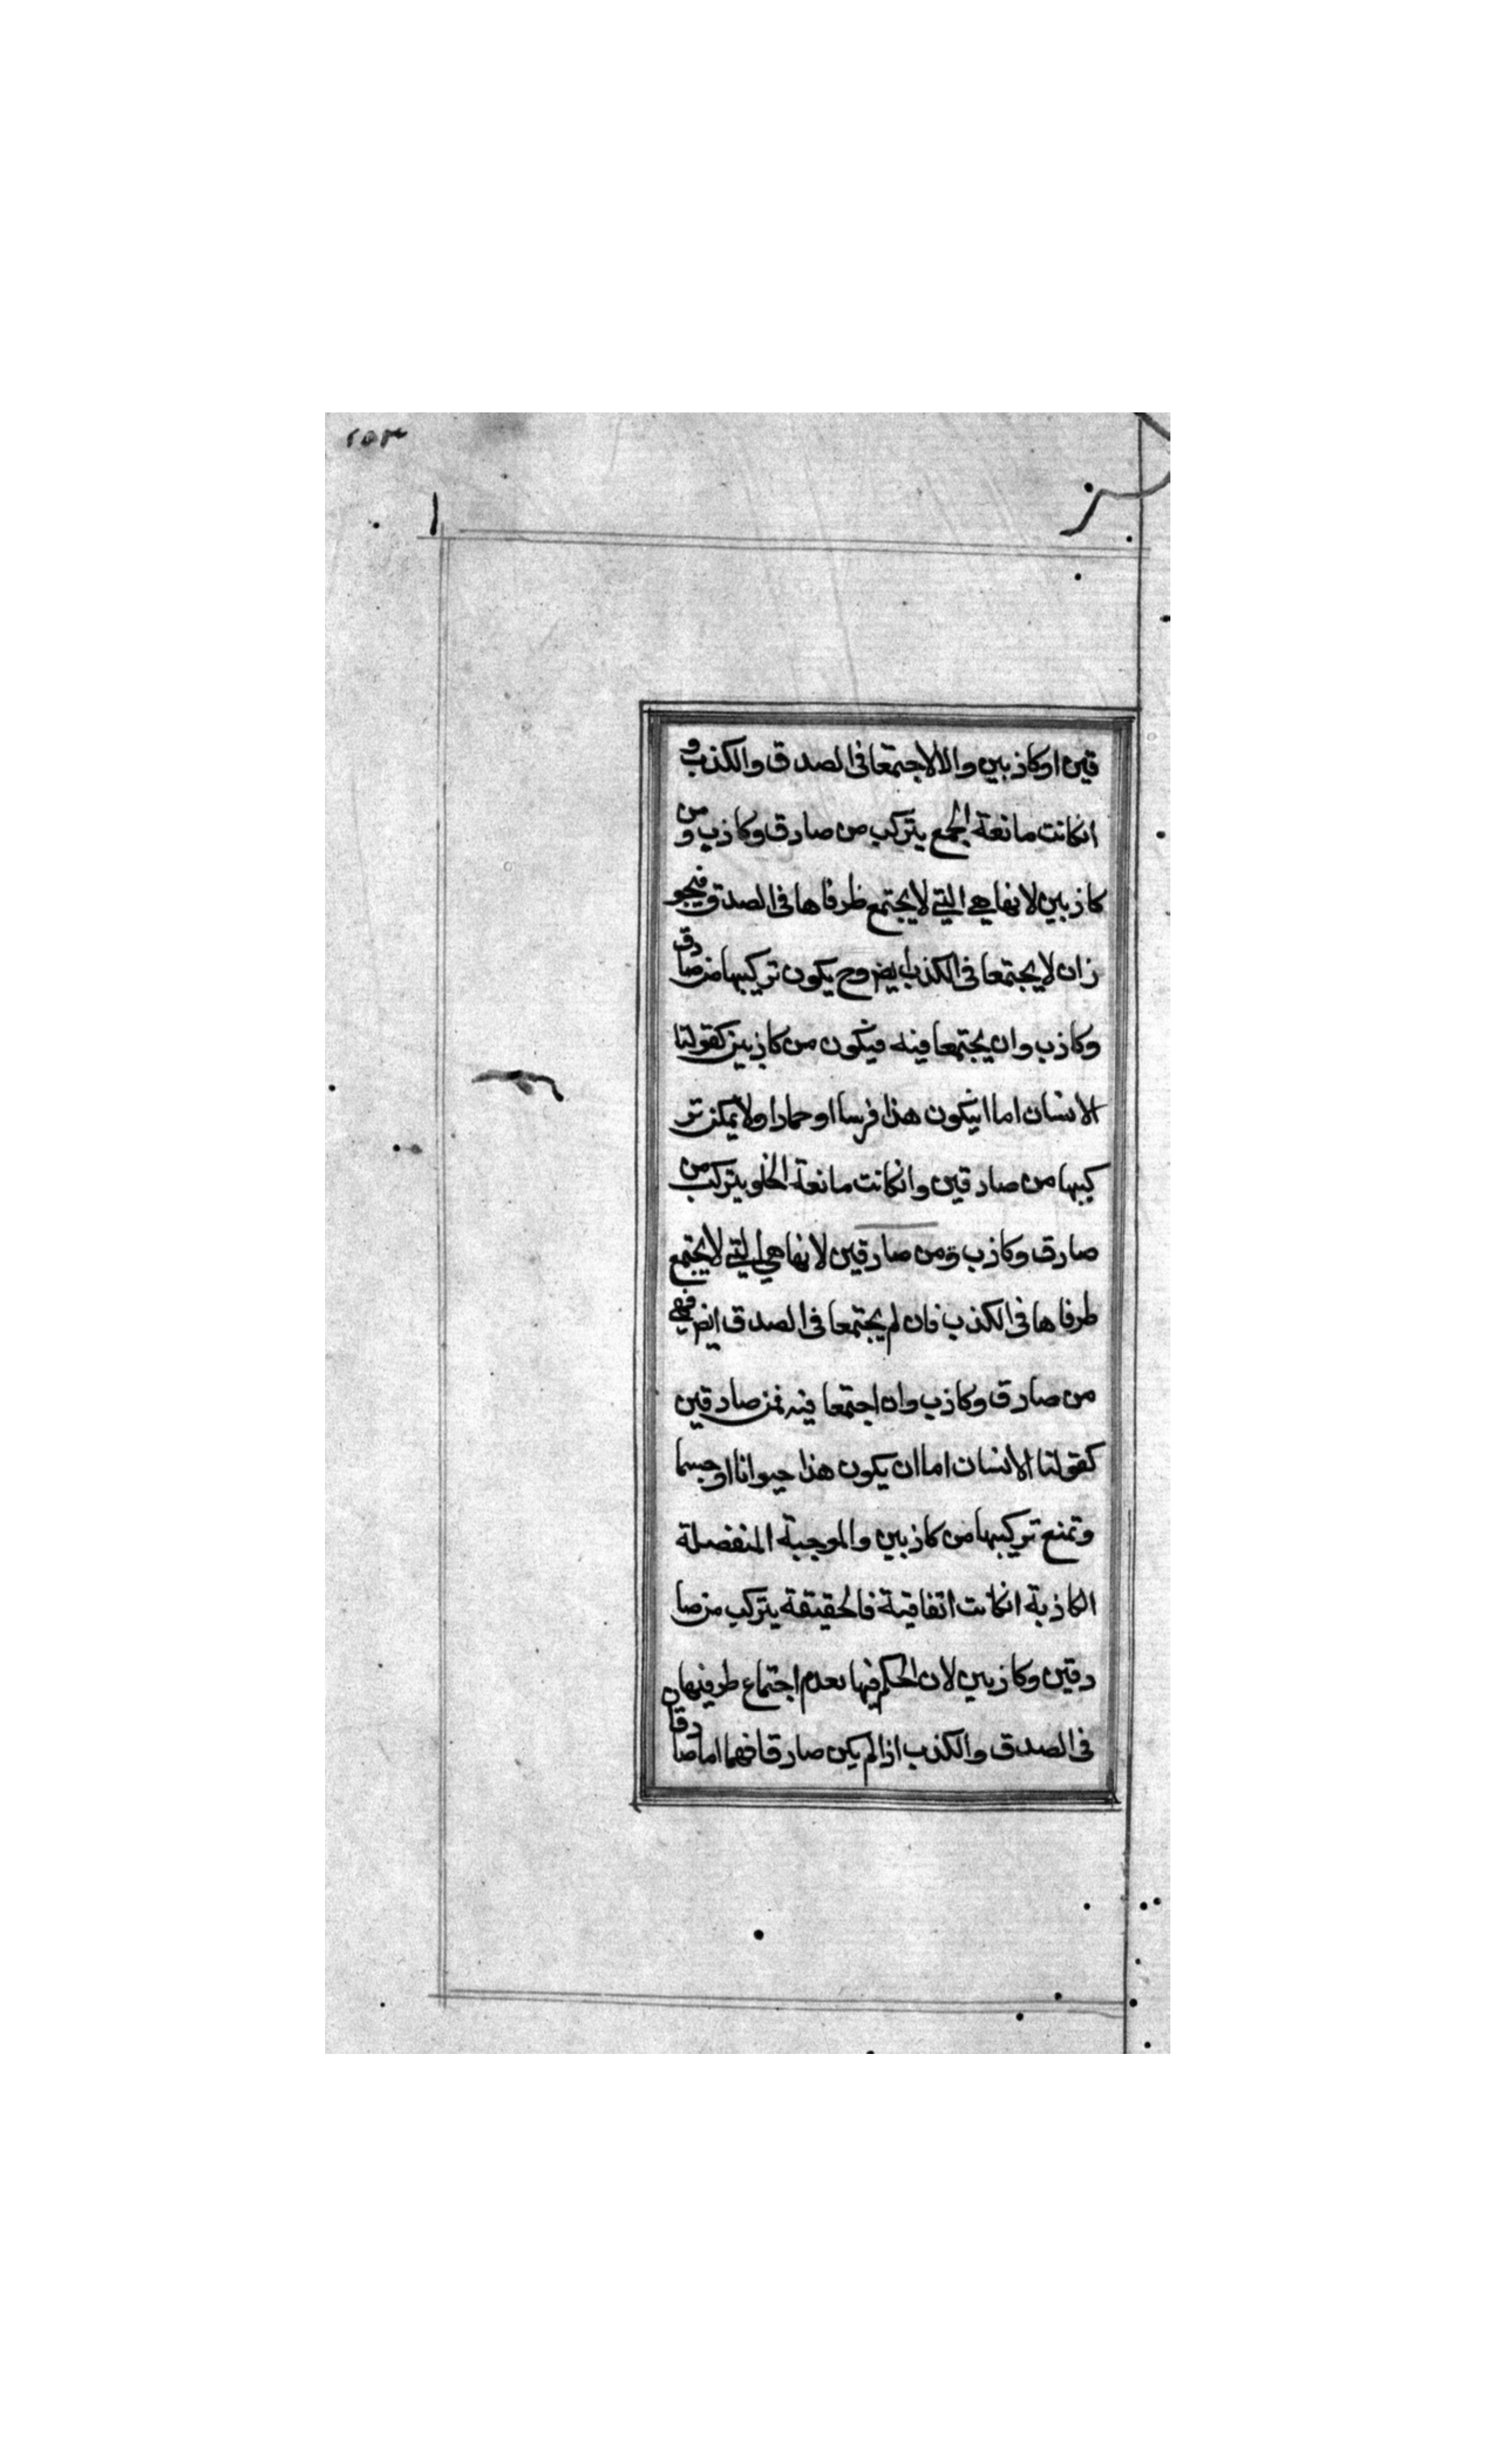 ٢٥٣
قين اوكاذبين والالاجتمعا فى الصدق والكذب و
انكانت مانعة الجمع يتركب من صادق وكاذب ومن
كاذبين لانها هى التى لايجتمع طرفاها فى الصدق فيجو
زان لا يجتمعا فى الكذب ايض وح يكون تركيبها من صادق
وكاذب وان يجتمعا فيه فيكون من كاذبين كقولنا
الانسان اما انيكون هذا فرسا او حمارا ولا يمكن تر
كيبها من صادقين وانكانت مانعة الخلو يتركب من
صادق وكاذب ومن صادقين لانها هى التى لايجتمع
طرفاها فى الكذب فان لم يجتمعا فى الصدق ايض فهى
من صادق وكاذب وان اجتمعا فيه فمن صادقين
كقولنا الانسان اما ان يكون هذا حيوانا او جسما
وتمنع تركيبها من كاذبين والموجبة المنفصلة
الكاذبة انكانت اتفاقية فالحقيقة يتركب من صا
دقين وكاذبين لان الحكم فيها بعدم اجتماع طرفيها
فى الصدق والكذب اذا لم يكن صادقا فهما اما صادقا